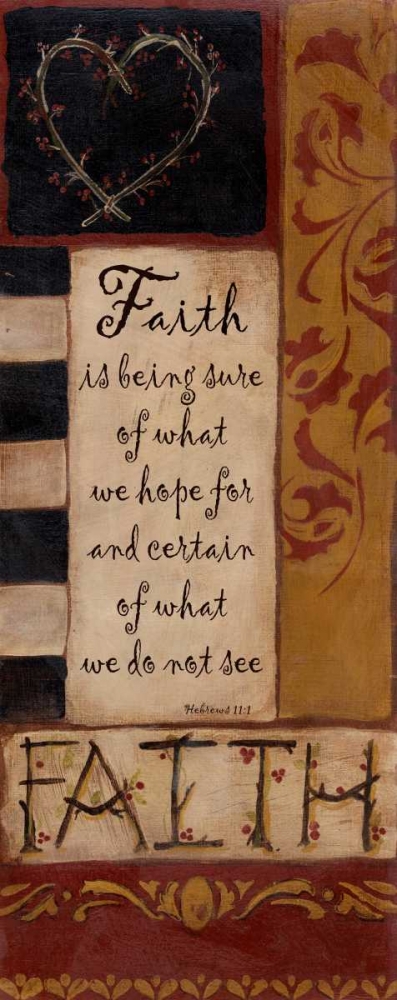 Faith
is being sure
of what
we hope for
and certain
of what
we do not see
Hebrews 11:1
FAITH